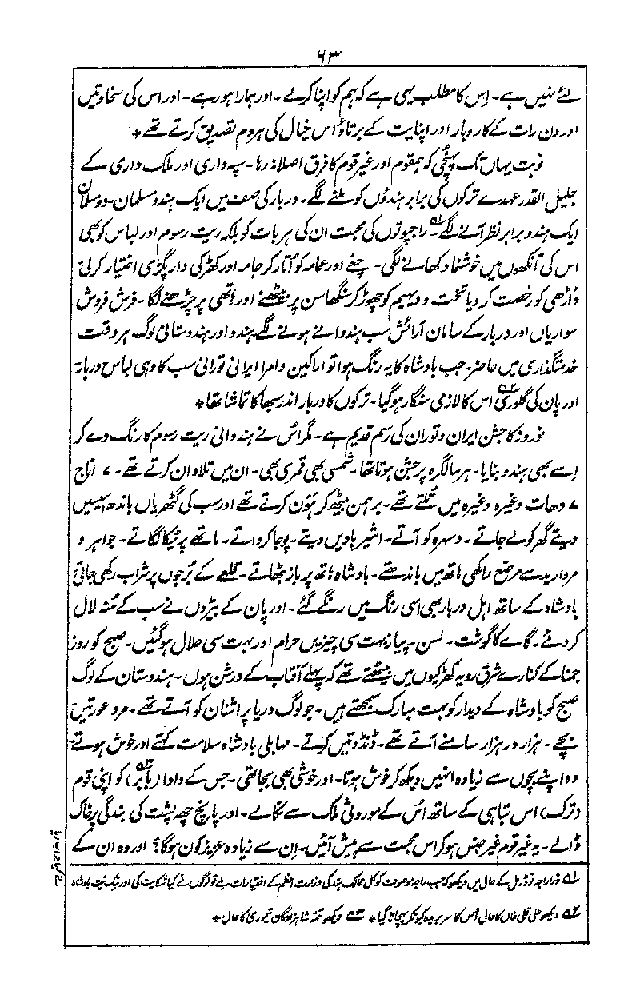 ۶۳
لئے نہیں ہے۔ اس کا مطلب یہی ہے کہ ہم کو اپنا کرے۔ اور ہمارا ہو رہے۔ اور اس کی سخاوتیں
اور دن رات کے کاروبار اور اپنایت کے برتاؤ اس خیال کی ہر دم تصدیق کرتے تھے *
نوبت یہاں تک پہنچی کہ ہمقوم اور غیر قوم کا فرق اصلا نہ رہا۔ سپہ داری اور ملک داری کے
جلیل القدر عہدے ترکوں کی برابر ہندوں کو ملنے لگے۔ دربار کی صف میں ایک ہندو مسلمان۔ دو مسلمان
ایک ہندو برابر نظر آنے لگے۔ راجپوتوں کی محبت ان کی ہر بات کو بلکہ ریت رسوم اور لباس کو بھی
اس کی آنکھوں میں خوشنما دکھانے لگی۔ چغے اور عمامہ کو اتار کر جامہ اور کھڑکی دار پگڑی اختیار کر لی
ڈاڑھی کو رخصت کر دیا تخت و دیہیم کو چھوڑ کر سنگھاسن پر بیٹھنے اور ہاتھی پر چڑھنے لگا۔ فرش فروش
سواریاں اور دربار کے سامان آرائش سب ہندوانے ہونے لگے ہندو اور ہندوستانی لوگ ہر وقت
خدمتگذاری میں حاضر۔ جب بادشاہ کا یہ رنگ ہوا تو اراکین و امرا ایرانی تورانی سب کا وہی لباس دربار
اور پان کی گلوری اس کا لازمی سنگار ہو گیا۔ ترکوں کا دربار اندر سبھا کا تماشا تھا *
نوروز کا جشن ایران و توران کی رسم قدیم ہے۔ مگر اس نے ہندوانی ریت رسوم کا رنگ دے کر
اسے بھی ہندو بنایا۔ ہر سالگرہ پر جشن ہوتا تھا۔ شمسی بھی قمری بھی۔ ان میں تلادان کرتے تھے۔ ۷ اناج
۷ دھات وغیرہ وغیرہ میں تلتے تھے۔ برہمن بیٹھ کر ہون کرتے تھے اور سب کی گٹھریاں باندھ اسیسیں
دیتے گھر کو لے جاتے۔ دسہرہ کو آتے۔ اشیربادیں دیتے۔ پوجا کرواتے۔ ماتھے پر ٹیکا لگاتے۔ جواہر و
مروارید سے مرصع راکھی ہاتھ میں باندھتے۔ بادشاہ ہاتھ پر باز بٹھاتے۔ قلعے کے برجوں پر شراب رکھی جاتی
بادشاہ کے ساتھ اہل دربار بھی اسی رنگ میں رنگے گئے۔ اور پان کے بیڑوں نے سب کے منہ لال
کر دئے۔ گائے کا گوشت۔ لسن۔ پیاز بہت سی چیزیں حرام اور بہت سی حلال ہو گئیں۔ صبح کو روز
جمنا کے کنارے شرق رویہ کھڑکیوں میں بیٹھتے تھے کہ پہلے آفتاب کے درشن ہوں۔ ہندوستان کے لوگ
صبح کو بادشاہ کے دیدار کو بہت مبارک سمجھتے ہیں۔ جو لوگ دریا پر اشنان کو آتے تھے۔ مرد عورتیں
بچے۔ ہزار در ہزار سامنے آتے تھے۔ ڈنڈوتیں کرتے۔ مہابلی بادشاہ سلامت کہتے اور خوش ہوتے
وہ اپنے بچوں سے زیادہ انہیں دیکھ کر خوش ہوتا۔ اور خوشی بھی بجا تھی۔ جس کے دادا (بابر) کو اپنی قوم
(ترک) اس تباہی کے ساتھ اس کے موروثی ملک سے نکالے۔ اور پانچ چھ پشت کی بندگی پر خاک
ڈالے۔ یہ غیر قوم غیر جنس ہو کر اس محبت سے پیش آئیں۔ ان سے زیادہ عزیز کون ہوگا؟ اور وہ ان کے